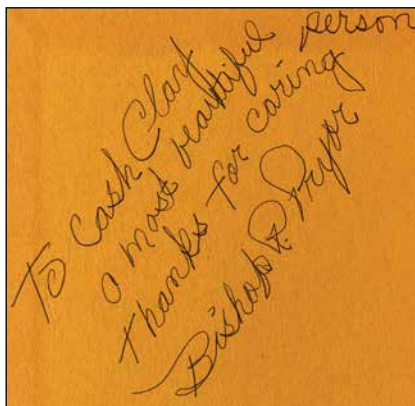 To Cash Clay
a most beautiful person
thanks for caring
Bishop P. Pryor